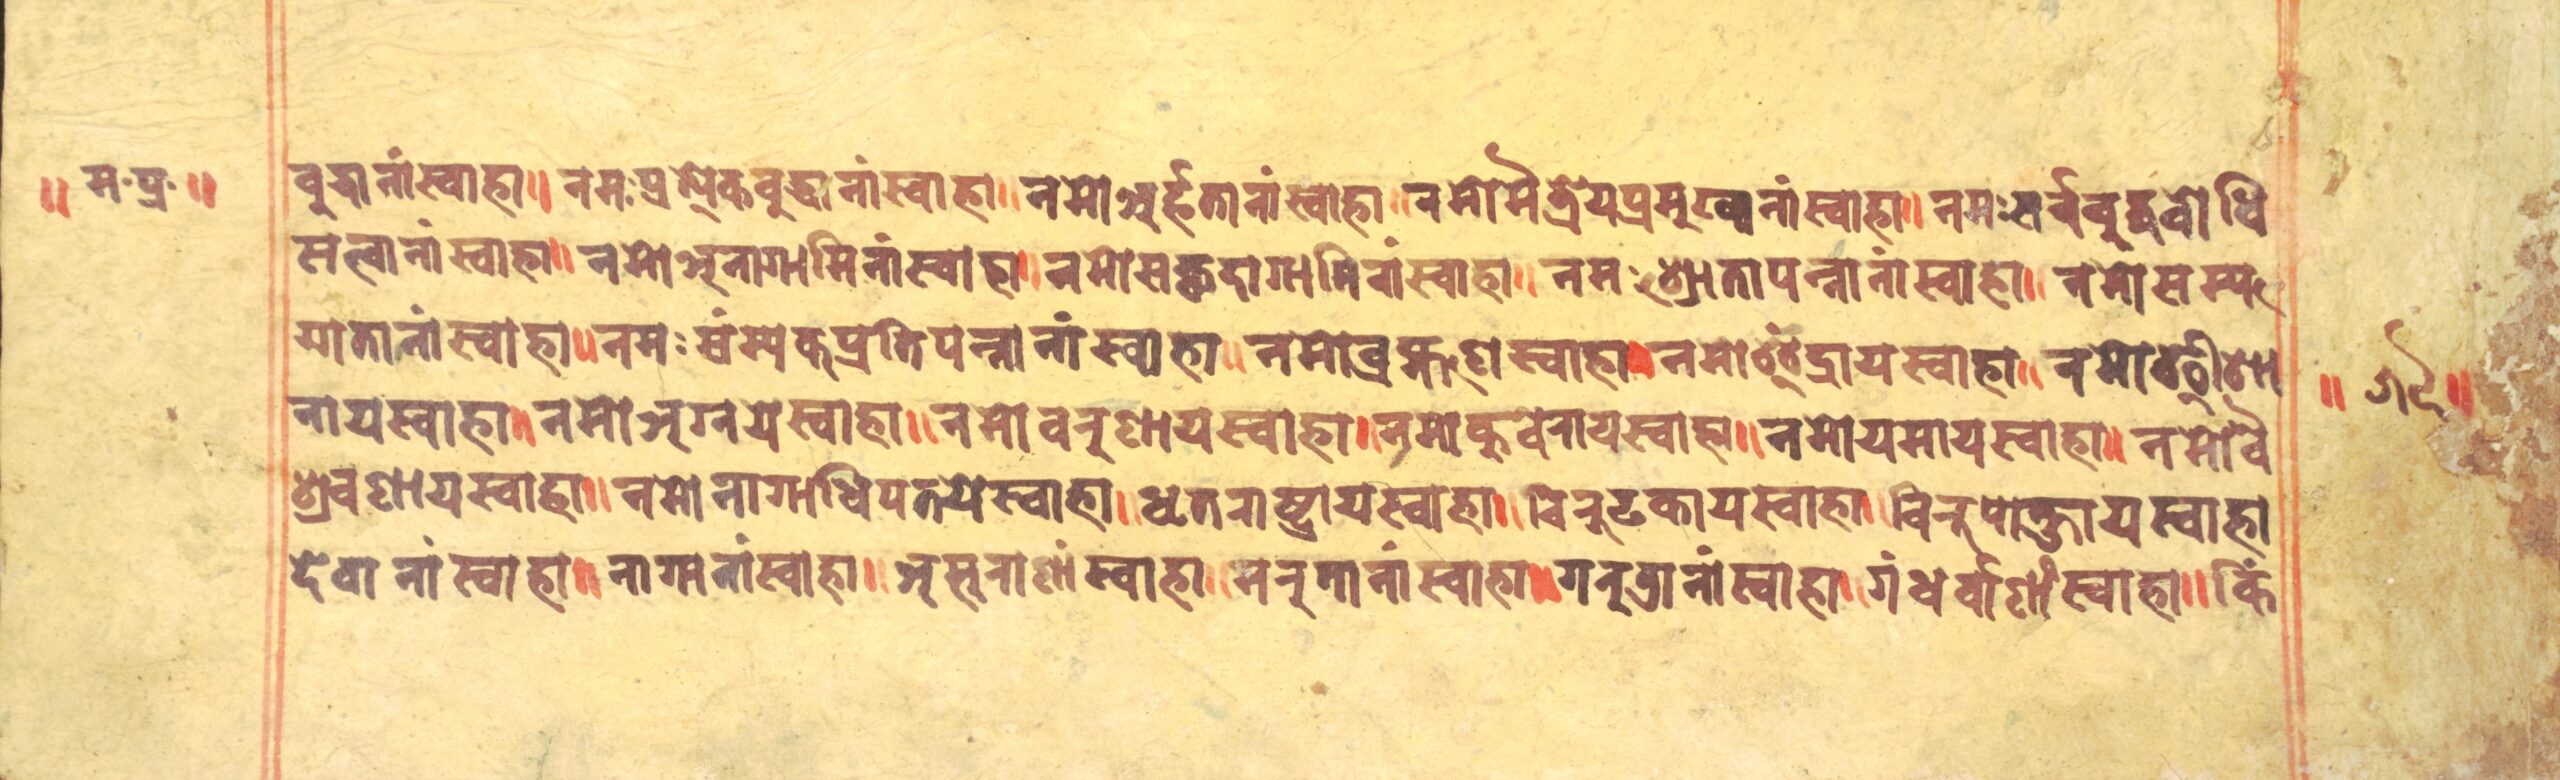 ॥ म· प्र· ॥
बुद्धानांस्वाहा॥ नमःप्रत्येकबुद्धानांस्वाहा॥ नमोअर्हतानांस्वाहा॥ नमोमैत्रेयप्रमुखानांस्वाहा॥ नमःसर्वबुद्धबोधि
सत्वानांस्वाहा॥ नमोअनागामिनांस्वाहा॥ नमोसकृदागामिनांस्वाहा॥ नमःश्रोतापन्नानांस्वाहा॥ नमोसम्यग्
गातानांस्वाहा॥ नमःसंम्यकप्रतिपन्नानांस्वाहा॥ नमोब्रह्मणेस्वाहा॥ नमोइंद्रायस्वाहा॥ नमोईशा
नायस्वाहा॥ नमोअग्नयेस्वाहा॥ नमोवरुणायस्वाहा॥ नमोकुवेरायस्वाहा॥ नमोयमायस्वाहा॥ नमोवै
श्रवणायस्वाहा॥ नमोनागाधिपतयेस्वाहा॥ धृतराष्ट्रायस्वाहा॥ विरुढकायस्वाहा॥ विरुपाक्षायस्वाहा
देवानांस्वाहा॥ नागानांस्वाहा॥ असुराणांस्वाहा॥ मरुतानांस्वाहा॥ गरुडानांस्वाहा॥ गंधर्वाणांस्वाहा॥ किं